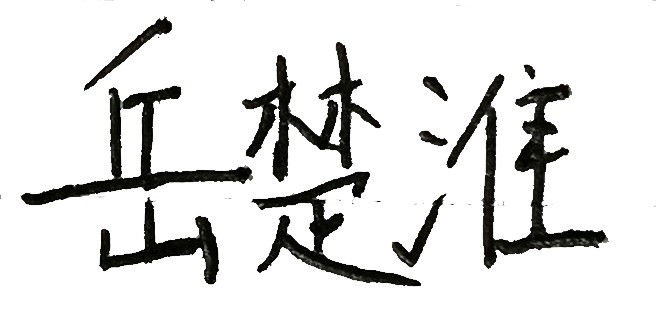 岳楚淮